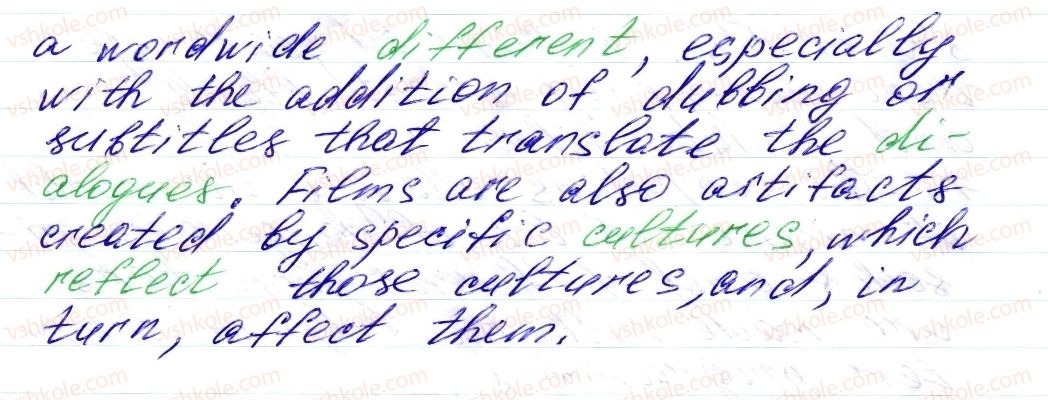 a wordwide different, especially
with the addition of dubbing or
subtitles that translate the di-
alogues. Films are also artifacts
created by specific cultures, which
reflect those cultures, and, in
turn, affect them.